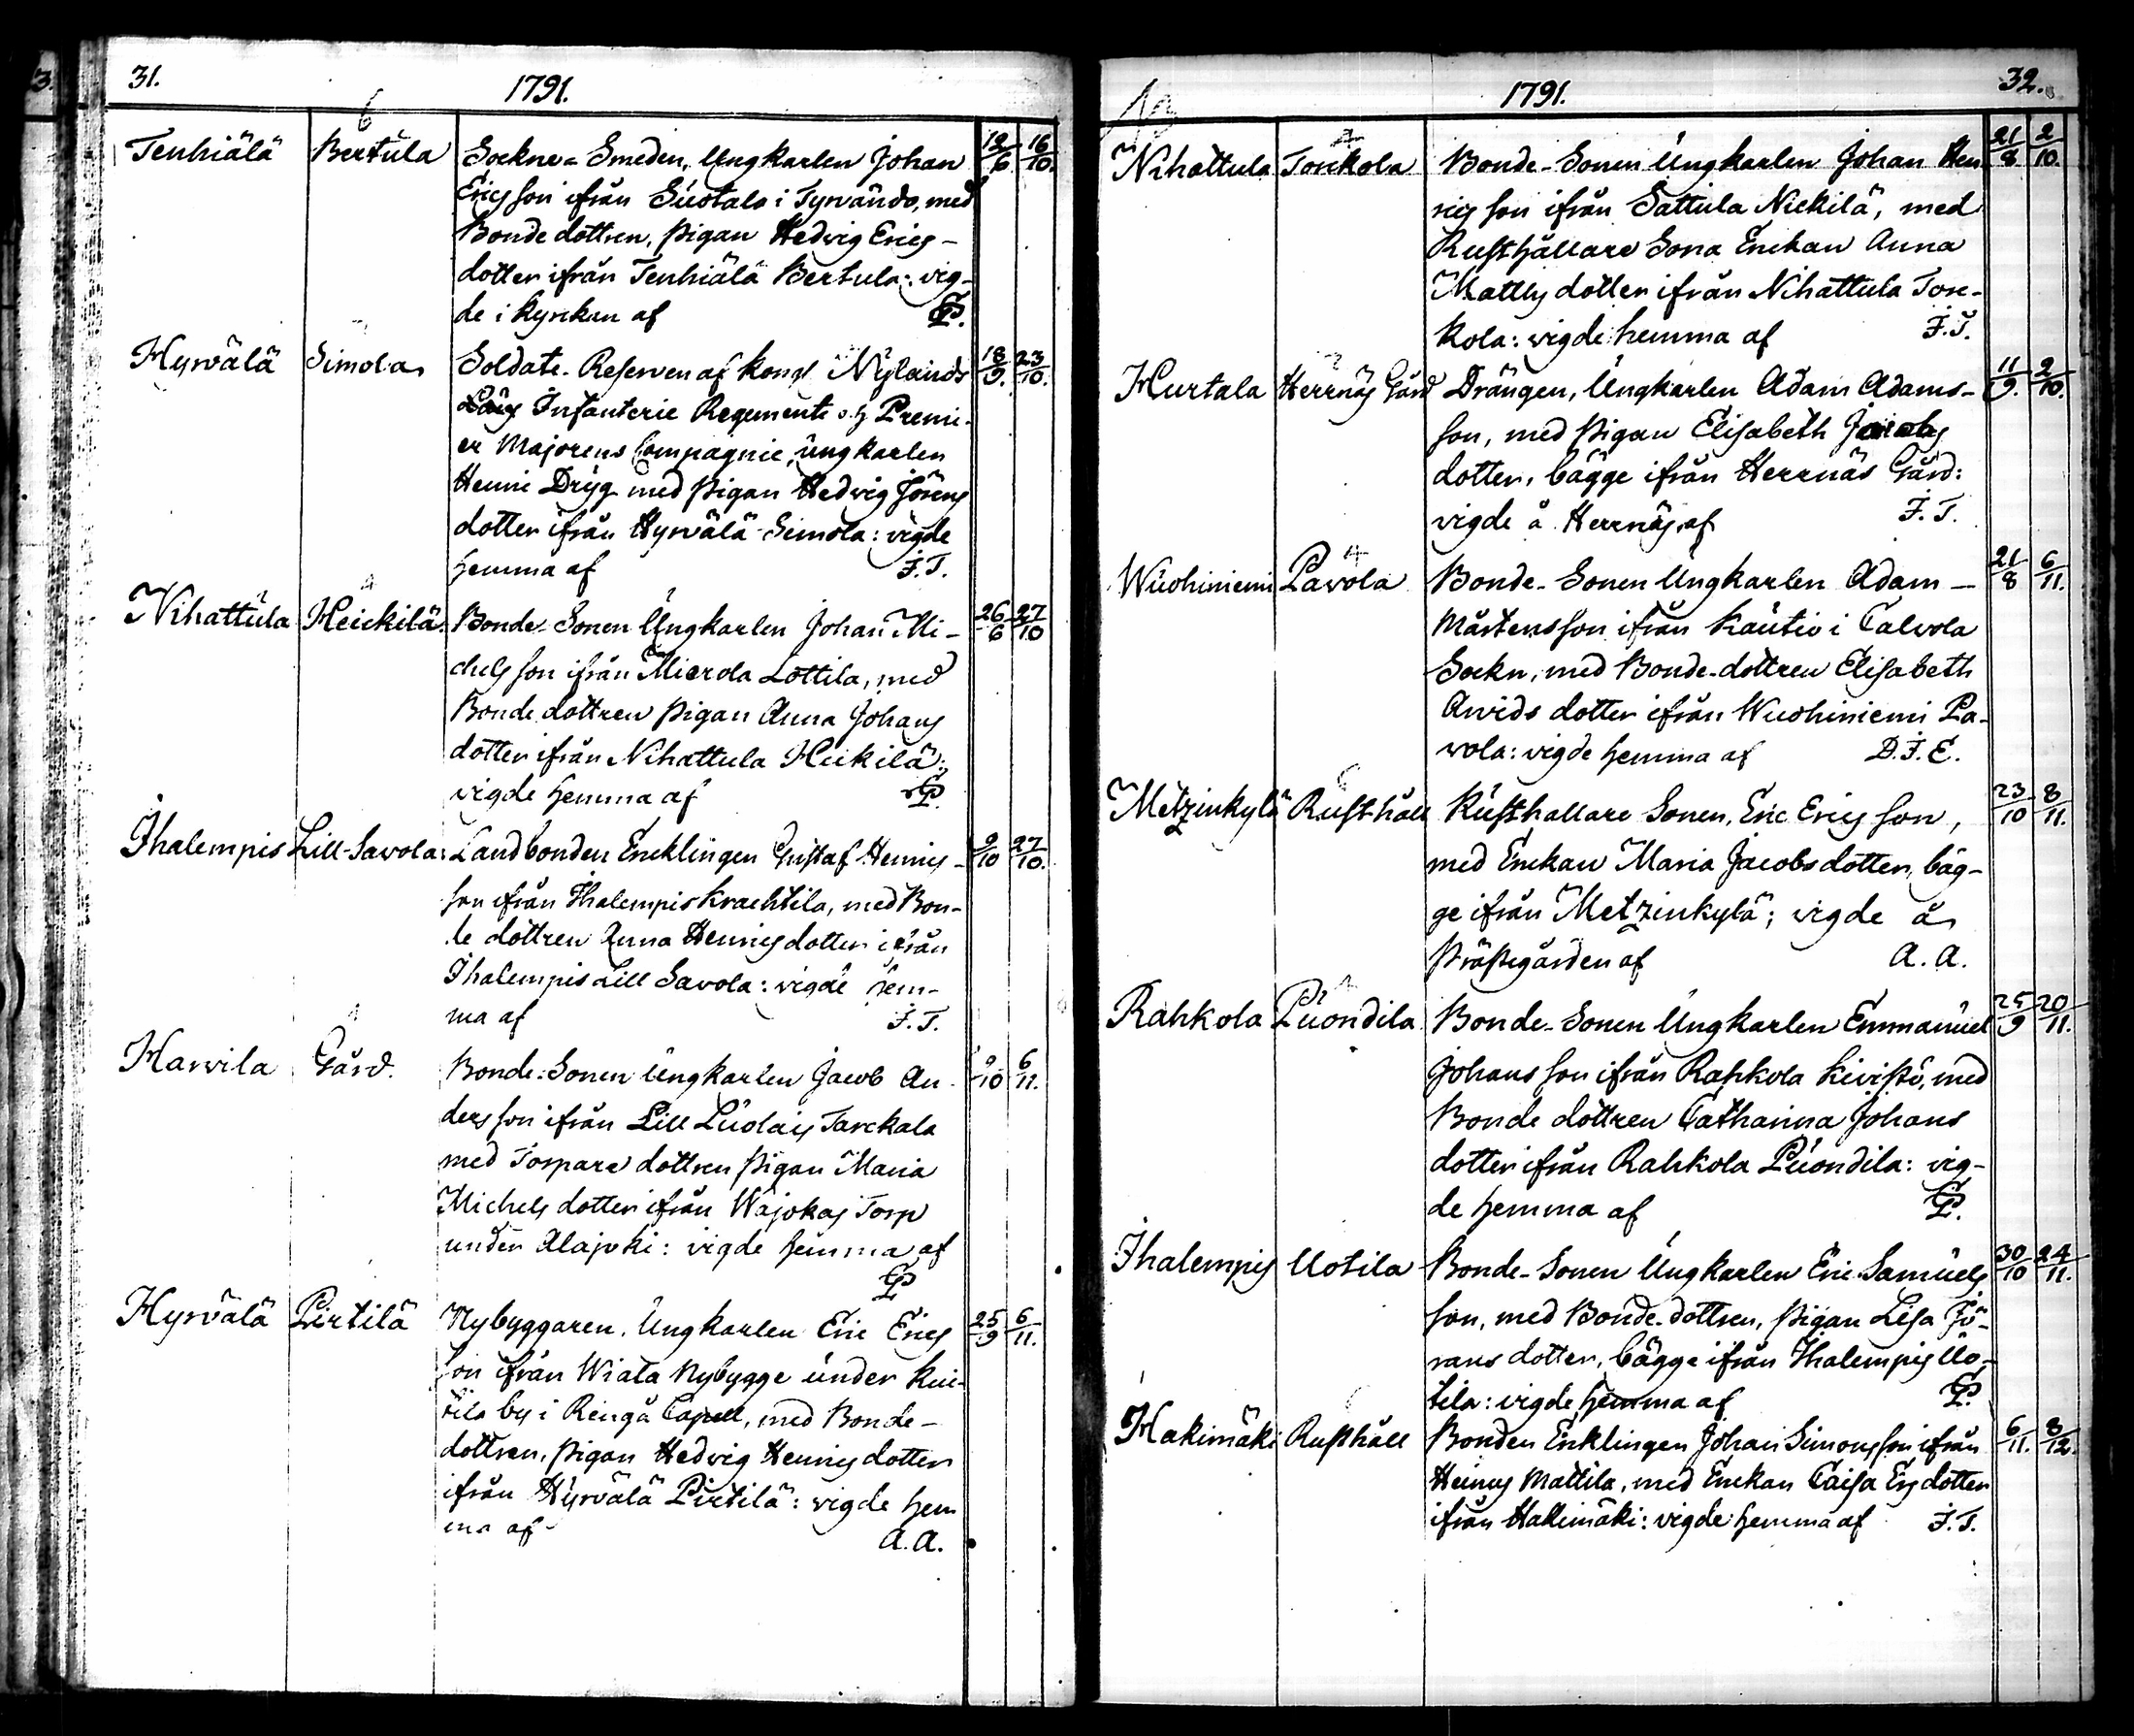 31.
1791.
Tenhiälä Bertula Sockne-Smeden, Ungkarlen Johan 12/6 16/10.
Ericsson ifrån Suotala i Tyrvändö, med
Bonde dottren, pigan Hedvig Erics-
dotter ifrån Tenhiälä Bertula: vig-
de i kyrkan af
Hyrvälä Simola Soldate-Reserven af Kongl Nylands 18/9. 23/10.
Läns Infanterie Regemente Premi-
er Majorens Compagnie, ungkarlen
Henric Dryg med pigan Hedvig Jörens
dotter ifrån Hyrvälä Simola: vigde
hemma af J.T.
Nihattula Heickilä Bonde-Sonen Ungkarlen Johan Mi- 26/6 27/10
chels son ifrån Mierola Lottila, med
Bonde dottren pigan Anna Johans
dotter ifrån Nihattula Heikilä:
vigde hemma af
Ihalempis Lill-Savola Landbonden Encklingen Gustaf Henrics- 9/10 27/10.
son ifrån Ihalempis Krachtila, med Bon-
de dottren Anna Henrics dotter ifrån
Ihalempis Lill Savola: vigde hem-
ma af J.T.
Harvila Gård. Bonde-Sonen Ungkarlen Jacob An- 9/10 6/11.
ders son ifrån Lill Luolais Tarckala
med Torpare dottren pigan Maria
Michels dotter ifrån Wajokas Torp
under Alajoki: vigde hemma af
Hyrvälä Pirtilä Nybyggaren, Ungkarlen Eric Erics 25/9 6/11.
son ifrån Wiata Nybygge under Kui-
tila by i Rengå Capell, med Bonde-
dottren, pigan Hedvig Henrics dotter
ifrån Hyrvälä Pirtilä: vigde hem
ma af A.A.
1791. 32.
Nihattula Torckola Bonde-Sonen Ungkarlen Johan Hen- 21/8. 2/10.
rics son ifrån Sattula Nickilä, med
Rusthållare Sona Enckan Anna
Matths dotter ifrån Nihattula Torc-
kola: vigde hemma af J.T.
Hurtala Herrnäs Gård Drängen, Ungkarlen Adam Adams- 11/9. 2/10.
son, med pigan Elisabeth Jacobs
dotter, bägge ifrån Herrnäs Gård:
vigde å Herrnäs af J.T.
Wuohiniemi Pavola Bonde-Sonen Ungkarlen Adam - 21/8 6/11.
Mårtensson ifrån Kautio i Calvola
Sockn, med Bonde-dottren Elisabeth
Arvids dotter ifrån Wuohiniemi Pa-
vola: vigde hemma af D.J.E.
Metzinkylä Rusthåll Rusthållare Sonen, Eric Erics son, 23/10 8/11.
med Enckan Maria Jacobs dotter, bäg-
ge ifrån Metzinkylä; vigde å
Prästgården af A.A.
Rahkola Puondila Bonde-Sonen Ungkarlen Emmanuel 25/9 20/11.
Johans son ifrån Rahkola Kivistö, med
Bonde dottren Catharina Johans
dotter ifrån Rahkola Puondila: vig-
de hemma af
Ihalempis Uotila Bonde-Sonen Ungkarlen Eric Samuels 30/10 24/11.
son, med Bonde-dottren, pigan Lisa Jö-
rans dotter, bägge ifrån Ihalempis Uo-
tila: vigde hemma af
Hakimäki Rusthåll Bonden Enklingen Johan Simons son ifrån 6/11. 8/12.
Heinus Mattila, med Enckan Caisa Ers dotter
ifrån Hakimäki: vigde hemma af J.T.